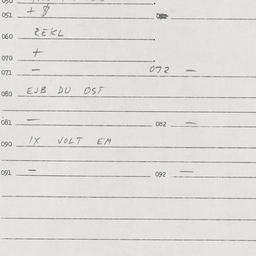 051 +
060 REKL
070 +
071 — 072 —
080 EJB DU OST
081 — 082 —
090 IX VOLT EM
091 — 092 —